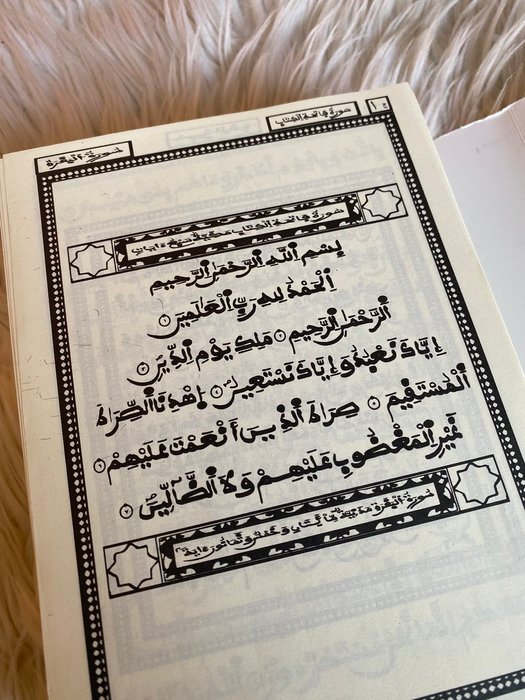 سورة فاتحة الكتاب ١
سورة البقرة
سورة فاتحة الكتاب مكية سبع ءايات
بِسْمِ اللَّهِ الرَّحْمَٰنِ الرَّحِيمِ
الْحَمْدُ لِلهِ رَبِّ الْعَٰلَمِينَ ١
الرَّحْمَٰنِ الرَّحِيمِ ٢ مَلِكِ يَوْمِ الدِّينِ ٣
إِيَّاكَ نَعْبُدُ وَإِيَّاكَ نَسْتَعِينُ ٤ اِهْدِنَا الصِّرَٰطَ
الْمُسْتَقِيمَ ٥ صِرَٰطَ الذِينَ أَنْعَمْتَ عَلَيْهِمْ ٦
غَيْرِ الْمَغْضُوبِ عَلَيْهِمْ وَلَا الضَّآلِّينَ ٧
سورة البقرة مدنية مايتان وخمس وثمانون ءاية